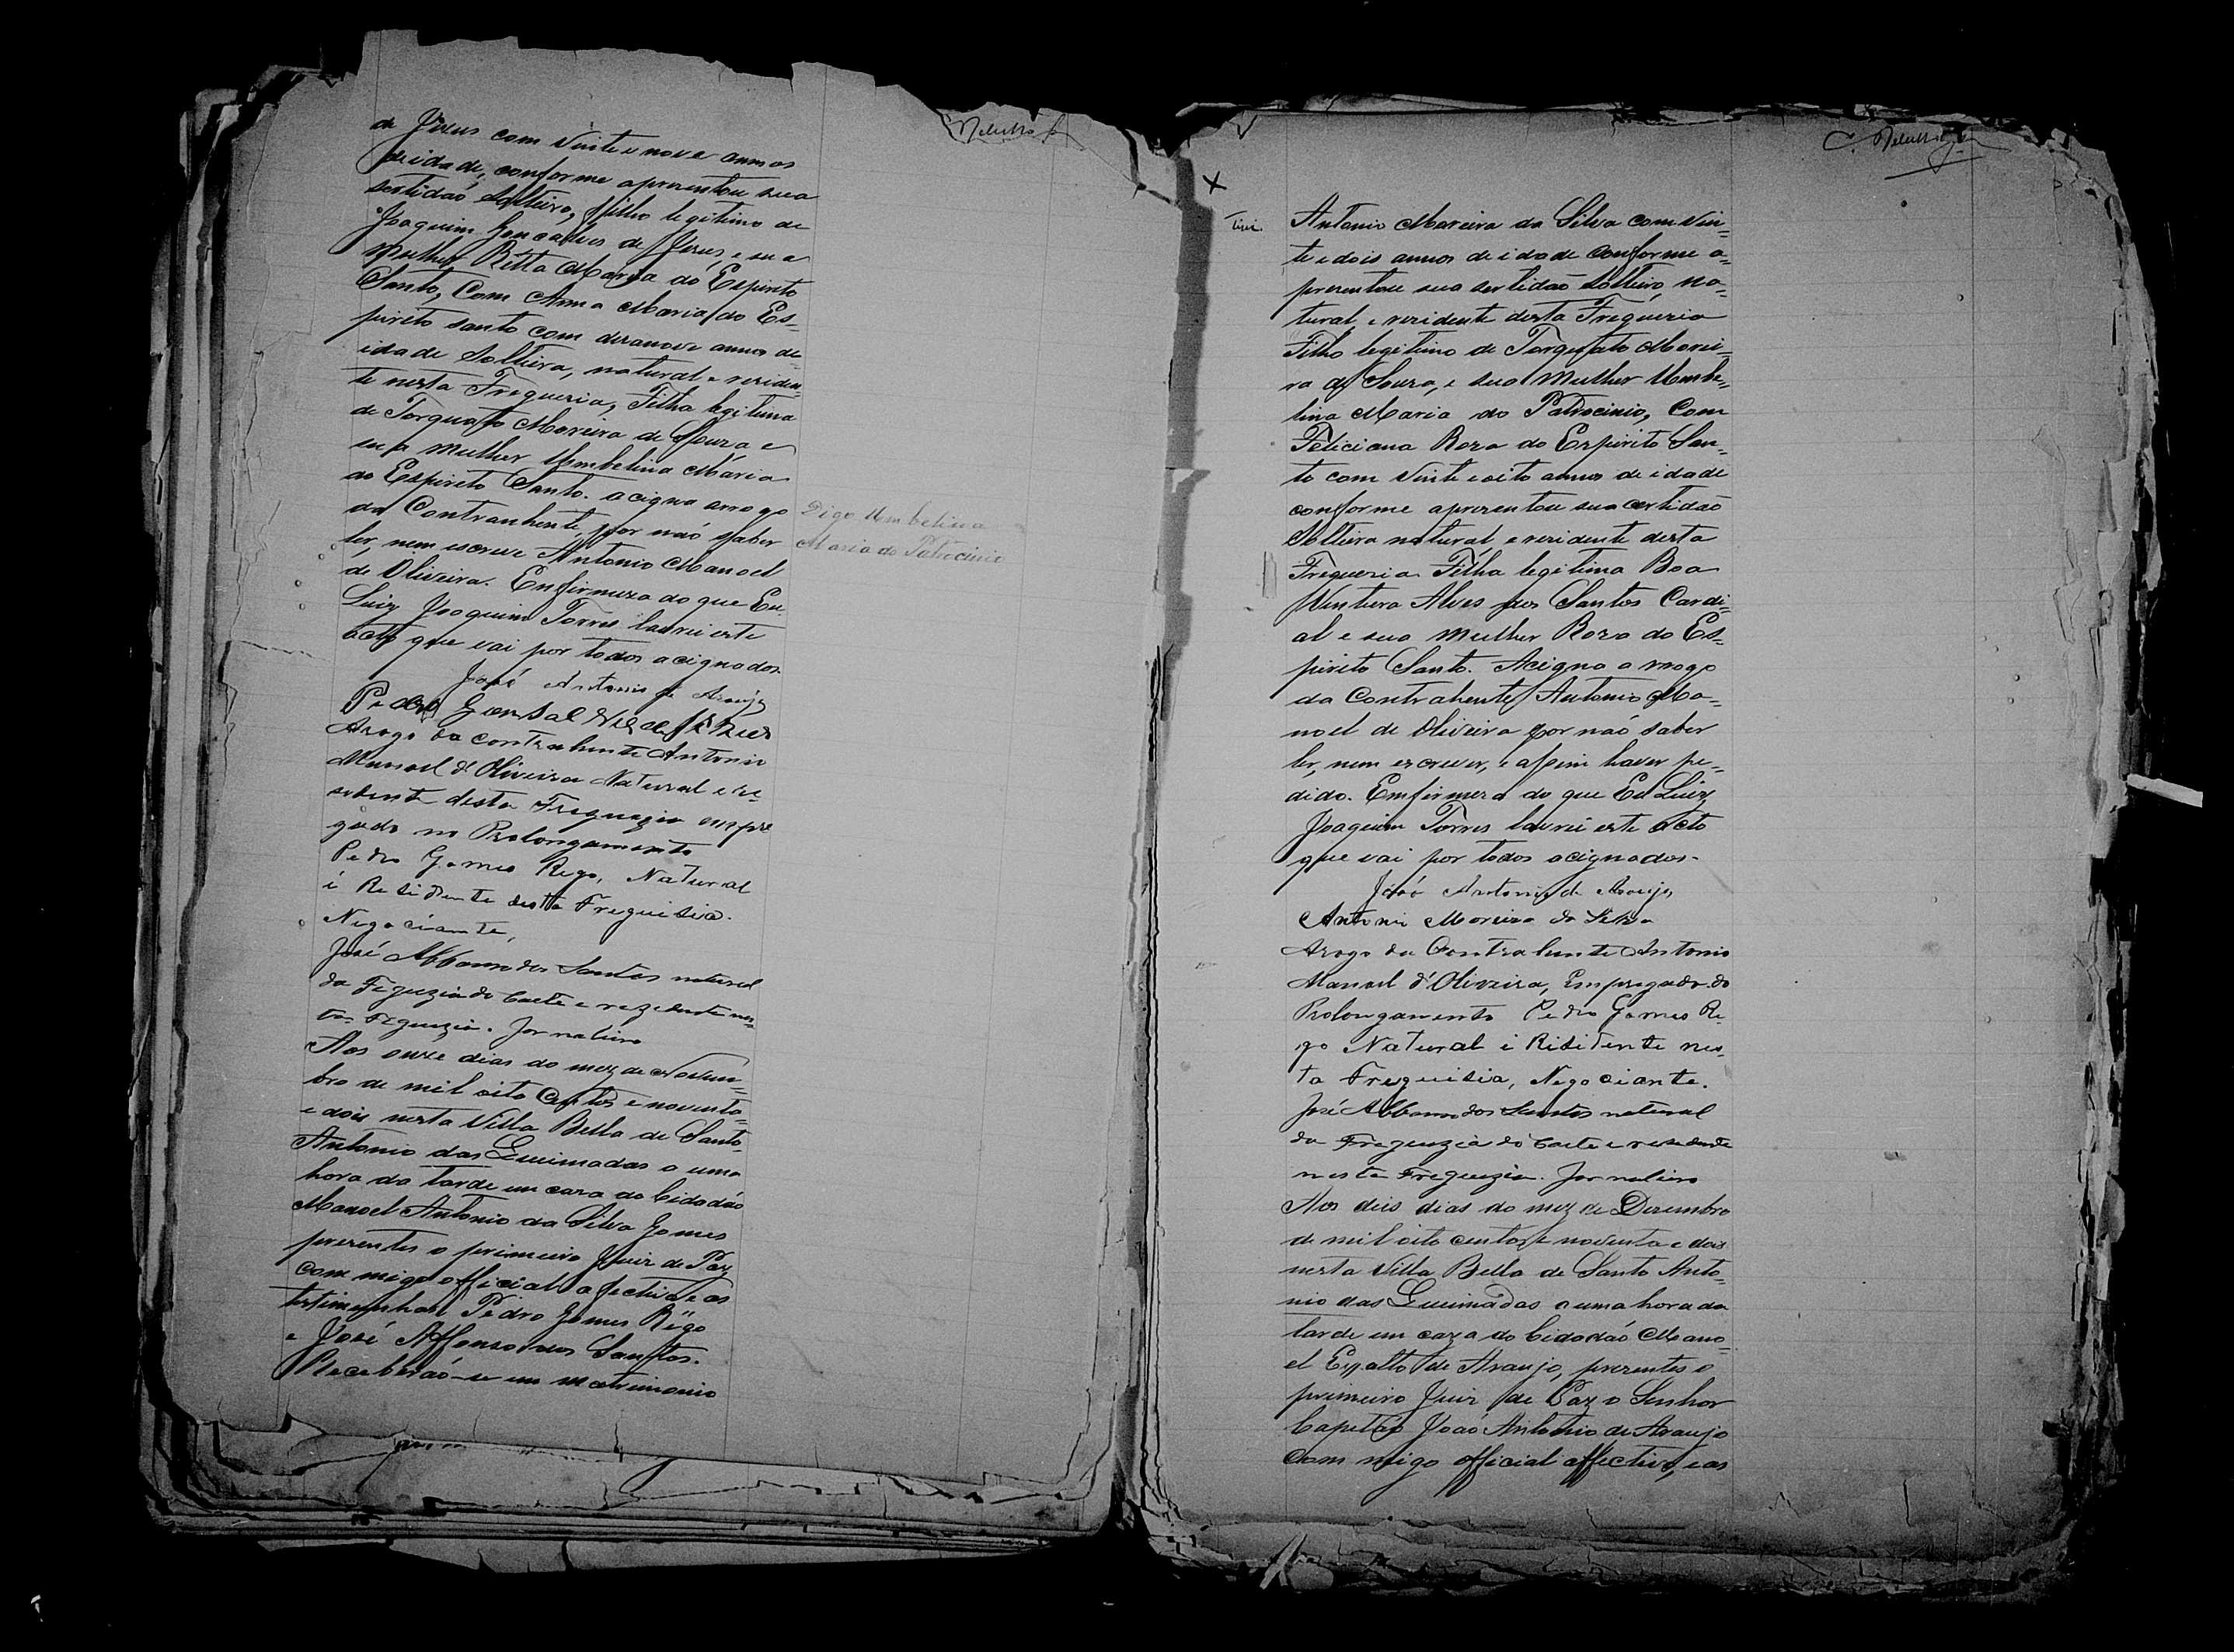 de Jesus com vinte e nove annos
de idade, conforme aprezentou sua
sertidaõ Solteiro, filho legitimo de
Joaquim Gonçalves de Jesus, e sua
mulher Ritta Maria do Espirito
Santo, Com Anna Maria do Es=
pirito santo com dezanove annos de
idade Solteira, natural e reziden=
te nesta Freguezia, Filha legitima
de Torquato Moreira de Souza e
sua mulher Umbelina Maria
do Espirito Santo. acigna arrogo
da Contrahente, por naõ saber
ler, nem escreve Antonio Manoel
de Oliveira. Enfirmeza do que Eu
Luiz Joaquim Torres lavrei este
acto que vai por todos acignados.
Digo Umbelina
Maria do Patrocinio
João Antonio de Araujo
Pedro
Arogo da contrahente Antonio
Manoel d'Oliveira Natural e re-
sidente desta Freguezia empre
gado no Prolongamento
Pedro Gomes Rego, Natural
i Residente desta Freguisia.
Negociante,
José Affonso dos Santos natural
da Feguezia do Caete e rezedente nes-
ta Feguezia. Jornaleiro
Aos onze dias do mez de Novem=
bro de mil oito Centos e noventa
e dois nesta Villa Bella de Santo
Antonio das Queimadas a uma
hora da tarde em caza do Cidadaõ
Manoel Antonio da Silva Gomes
prezentes o primeiro Juiz de Paz
com migo official afectivo e as
testimunhas Pedro Gomes Rêgo
e José Affonso dos Santos.
Receberaõ-se em matrimonio
Antonio Moreira da Silva com vin=
te e dois annos de idade conforme a=
prezentou sua sertidaõ Solteiro, na=
tural e rezidente desta Freguezia
Filho legitimo de Torquato Morei=
ra de Souza, e sua mulher Umbe=
lina Maria do Patrocinio, Com
Feliciana Roza do Espirito San=
to com vinte e oito annos de idade
conforme aprezentou sua certidaõ
Solteira natural e rezidente desta
Freguezia Filha legitima Boa
Ventura Alves dos Santos Cardi=
al e sua mulher Roza do Es=
pirito Santo. Acigna a rrogo
da Contrahente Antonio Ma=
noel de Oliveira por naõ saber
ler, nem escrever, e assim haver pe=
dido. Emfirmeza do que Eu Luiz
Joaquim Torres lavrei este acto
que vai por todos acignados.
João Antonio de Araujo
Antonio Moreira da Silva
Arogo da Contrahente Antonio
Manoel d'Oliveira, Empregado do
Prolongamento Pedro Gomes Re-
go Natural i Risidente nes-
ta Freguisia, Negociante.
José Affonso dos Santos natural
da Freguezia do Caete e resedente
nesta Freguezia. Jornaleiro
Aos dois dias do mez de Dezembro
de mil oito centos e noventa e dois
nesta Villa Bella de Santo Anto=
nio das Queimadas a uma hora da
tarde em caza do Cidadaõ Mano=
el de Araujo, prezentes o
primeiro Juiz de Paz o Senhor
Capitaõ Joaõ Antonio de Araujo
Com migo official affectivo, e as